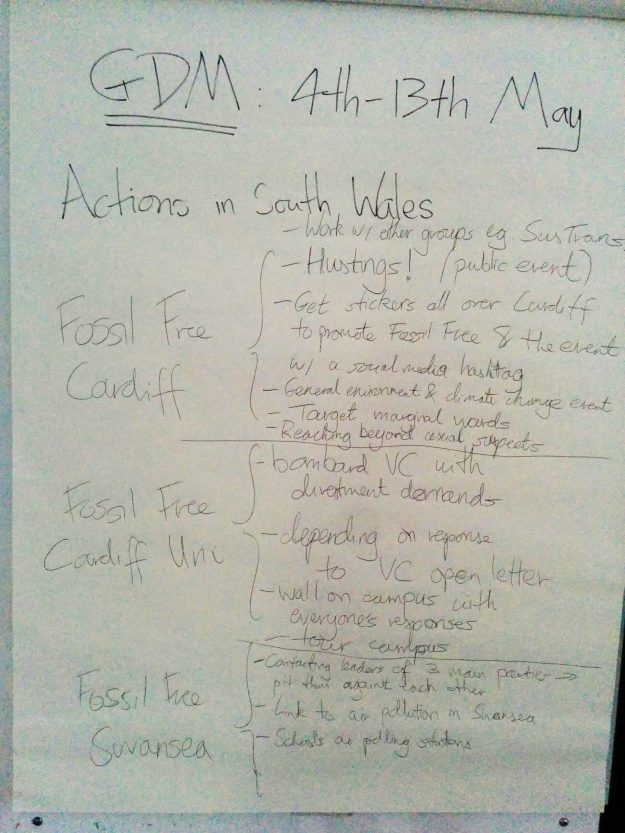 GDM: 4th-13th May
Actions in South Wales
- Work w/ other groups eg SusTrans
Fossil Free Cardiff
- Hustings! (public event)
- Get stickers all over Cardiff
to promote Fossil Free & the event
w/ a social media hashtag
- General environment & climate change event
- Target marginal wards
- Reaching beyond usual suspects
Fossil Free Cardiff Uni
- bombard VC with
divestment demands
- depending on response
to VC open letter
- wall on campus with
everyone's responses
- tour campus
Fossil Free Swansea
- Contacting leaders of 3 main parties ⇒
pit them against each other
- Link to air pollution in Swansea
- Schools as polling stations